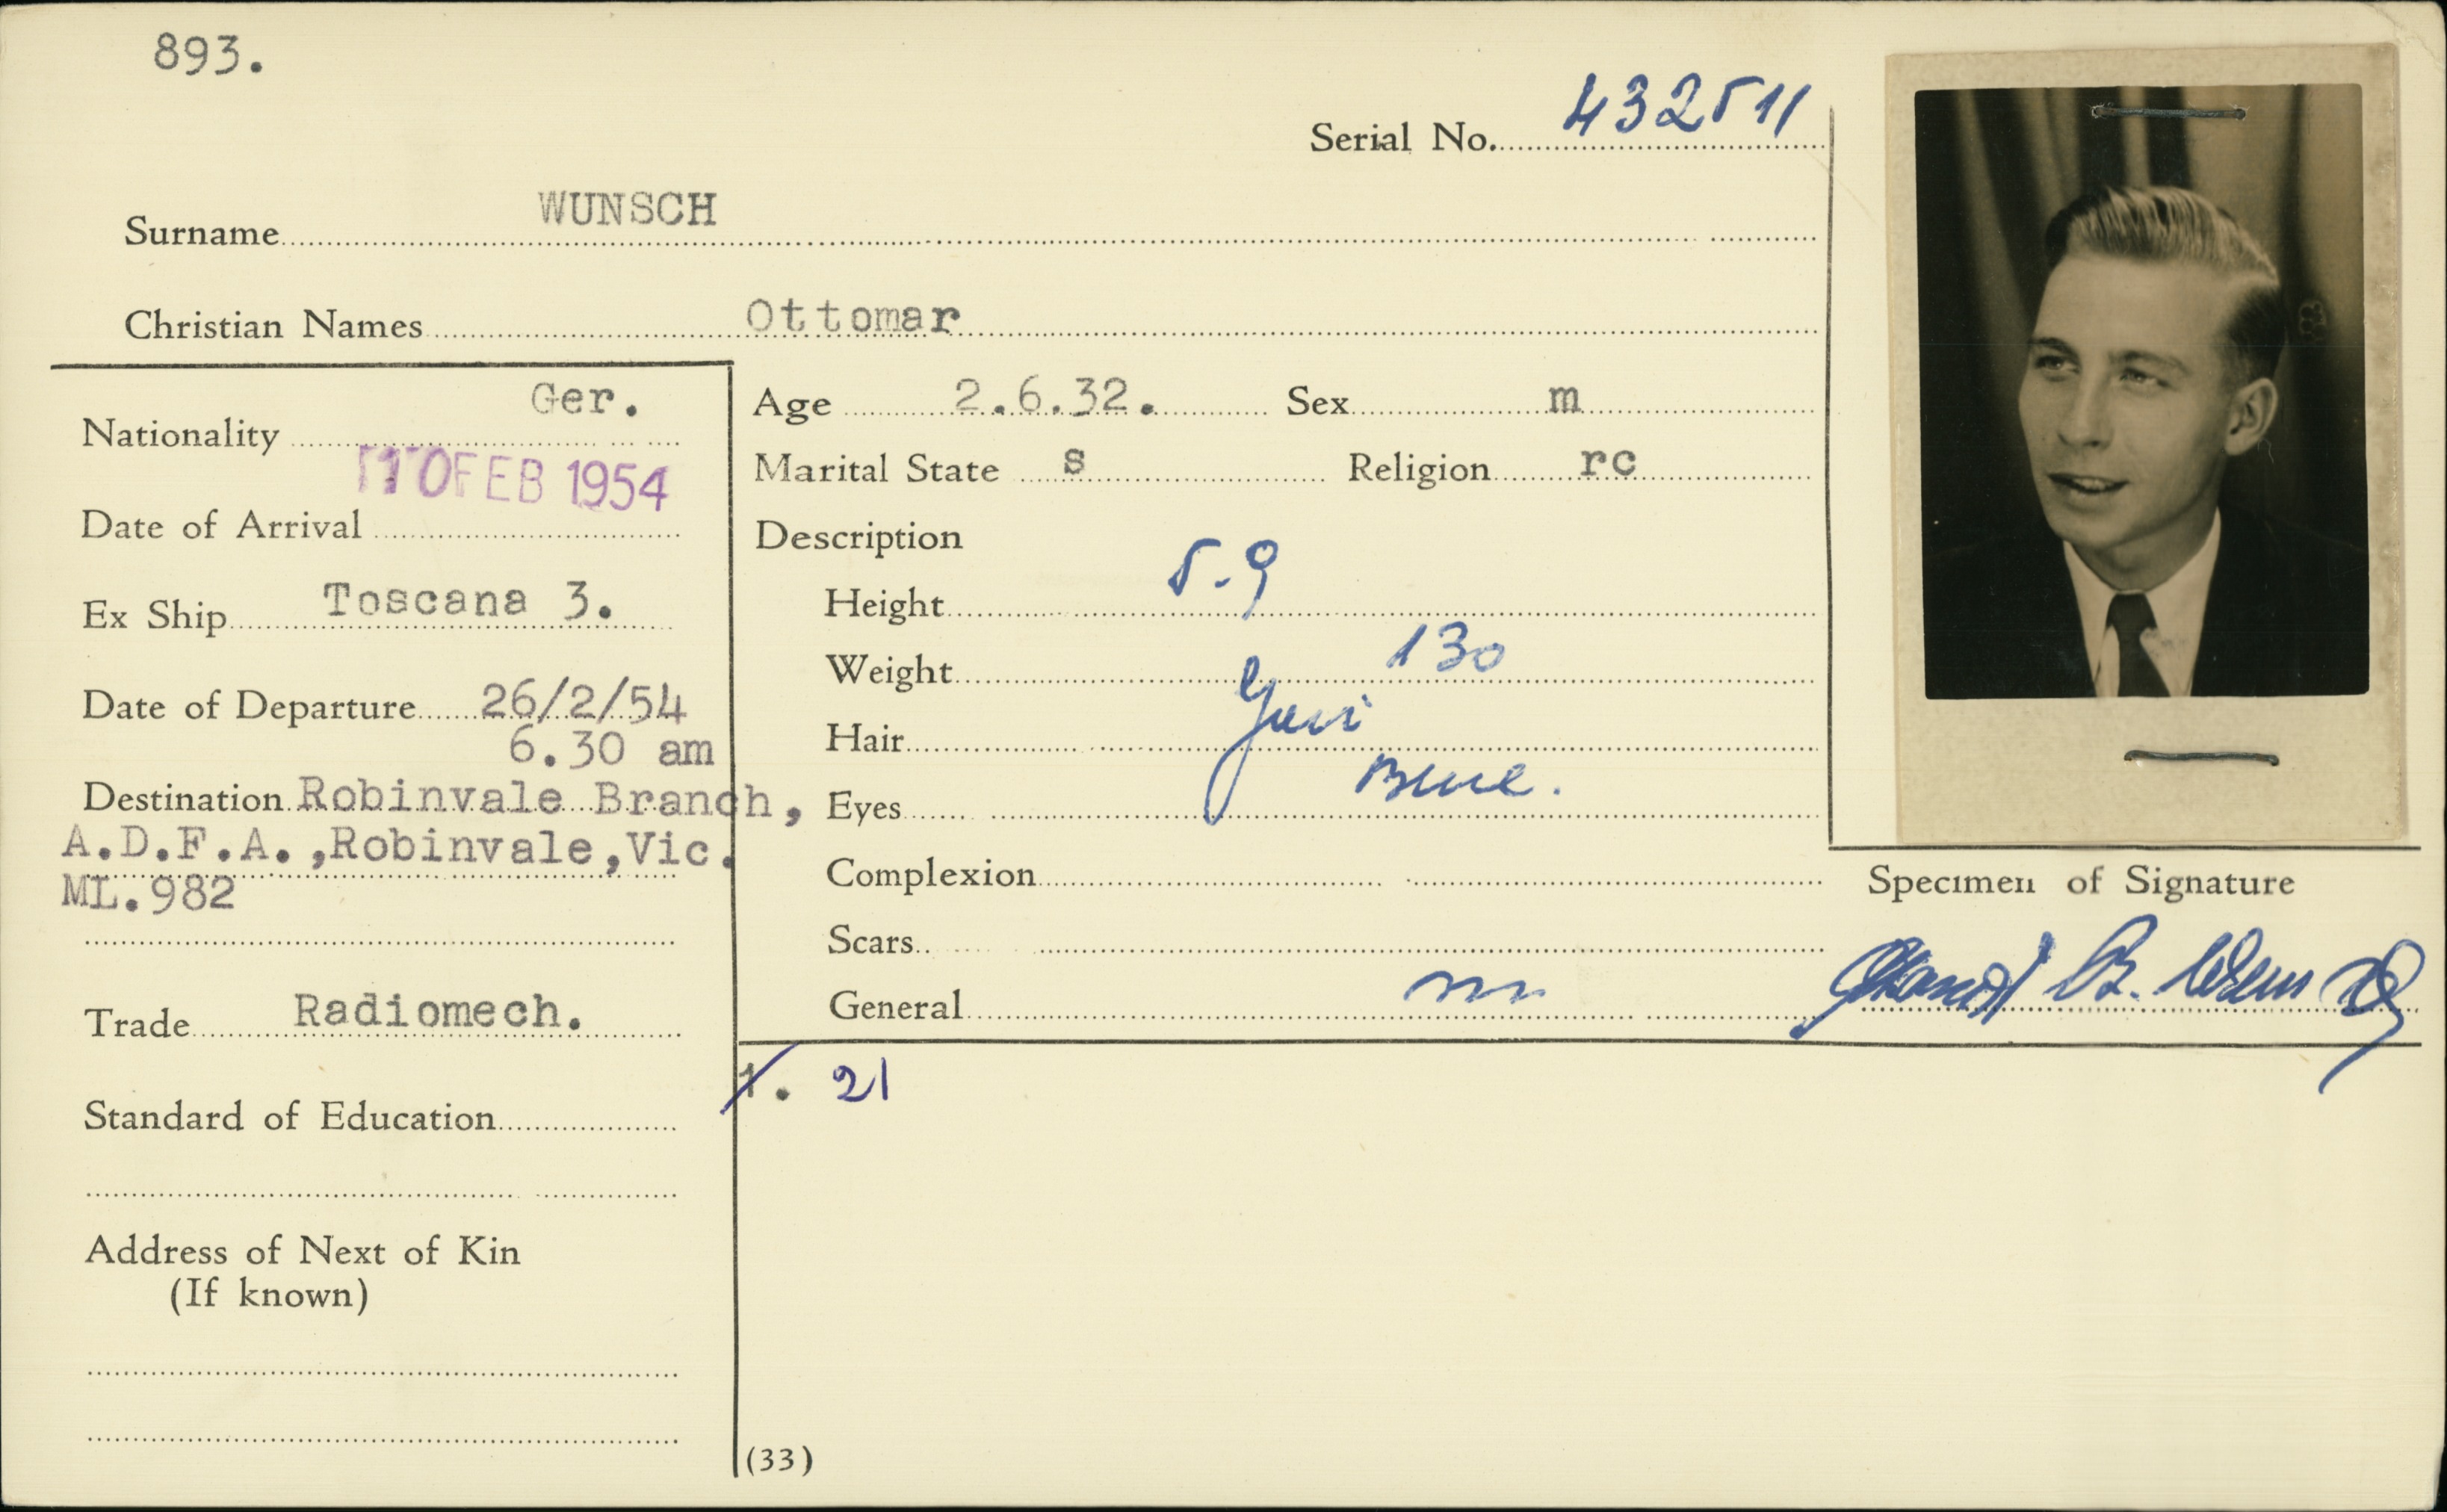 893.
Serial No. 432511
Surname WUNSCH
Christian Names Ottomar
Nationality Ger.
Date of Arrival 10 FEB 1954
Ex Ship Toscana 3.
Date of Departure 26/2/54
6.30 am
Destination Robinvale Branch,
A.D.F.A.,Robinvale,Vic.
ML.982
Trade Radiomech.
Standard of Education
Address of Next of Kin
(If known)
Age 2.6.32. Sex m
Marital State s Religion rc
Description
Height 5-9
Weight 130
Hair
Eyes Blue.
Complexion
Scars
General
1. 21
(33)
Specimen of Signature